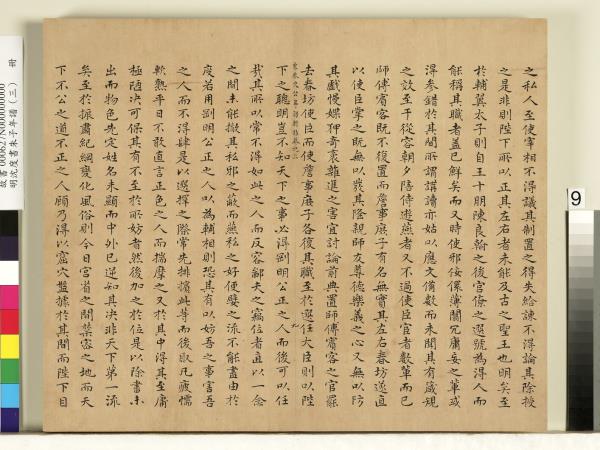 之私人至使宰相不得議其制置之得失給諫不得論其除授
之是非則陛下所以正其左右者未能及古之聖王也明矣至
於輔翼太子則自王十朋陳良翰之後宮僚之選號為得人而
能稱其職者蓋已鮮矣而又時使邪佞儇薄闒冗庸妄之輩或
得參錯於其間所謂講讀亦姑以應文備數而未聞其有箴規
之效至于從容朝夕陪侍遊燕者又不過使臣宦者數輩而已
師傅賓客既不復置而詹事庶子有名無實其左右春坊遂直
以使臣掌之既無以發其隆親師友尊德樂義之心又無以防
其戲慢媟狎奇衺雜進之害宜討論前典置師傅賓客之官罷
宋朱文公年譜
去春坊使臣而使詹事庶子各復其職至於選任大臣則以陛
下之聰明豈不知天下之事必得剛明公正之人而後可以任
哉其所以常不得如此之人而反容鄙夫之竊位者直以一念
之間未能撤其私邪之蔽而燕私之好便嬖之流不能盡由於
度若用剛明公正之人以為輔相則恐其有以妨吾之事害吾
之人而不得肆是以選擇之際常先排擯此等而後取凡疲懦
軟熟平日不敢直言正色之人而揣摩之又於其中得其至庸
極陋決可保其有不至於所妨者然後加之於位是以除書未
出而物色先定姓名未顯而中外已逆知其決非天下第一流
矣至於振肅紀綱變化風俗則今日宮省之間禁密之地而天
下不公之道不正之人顧乃得以窟穴盤據於其間而陛下目
故書000627N000000000
明沈度書朱子年譜(三) 冊
9